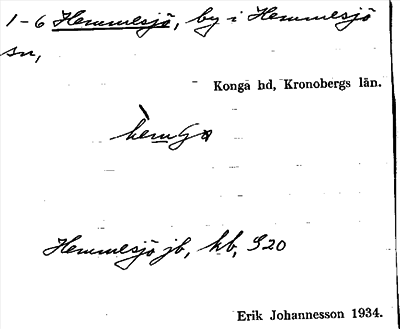 1-6 Hemmesjö, by i Hemmesjö
sn,
Konga hd, Kronobergs län.
Hemmesjö jb, kb, S20
Erik Johannesson 1934.